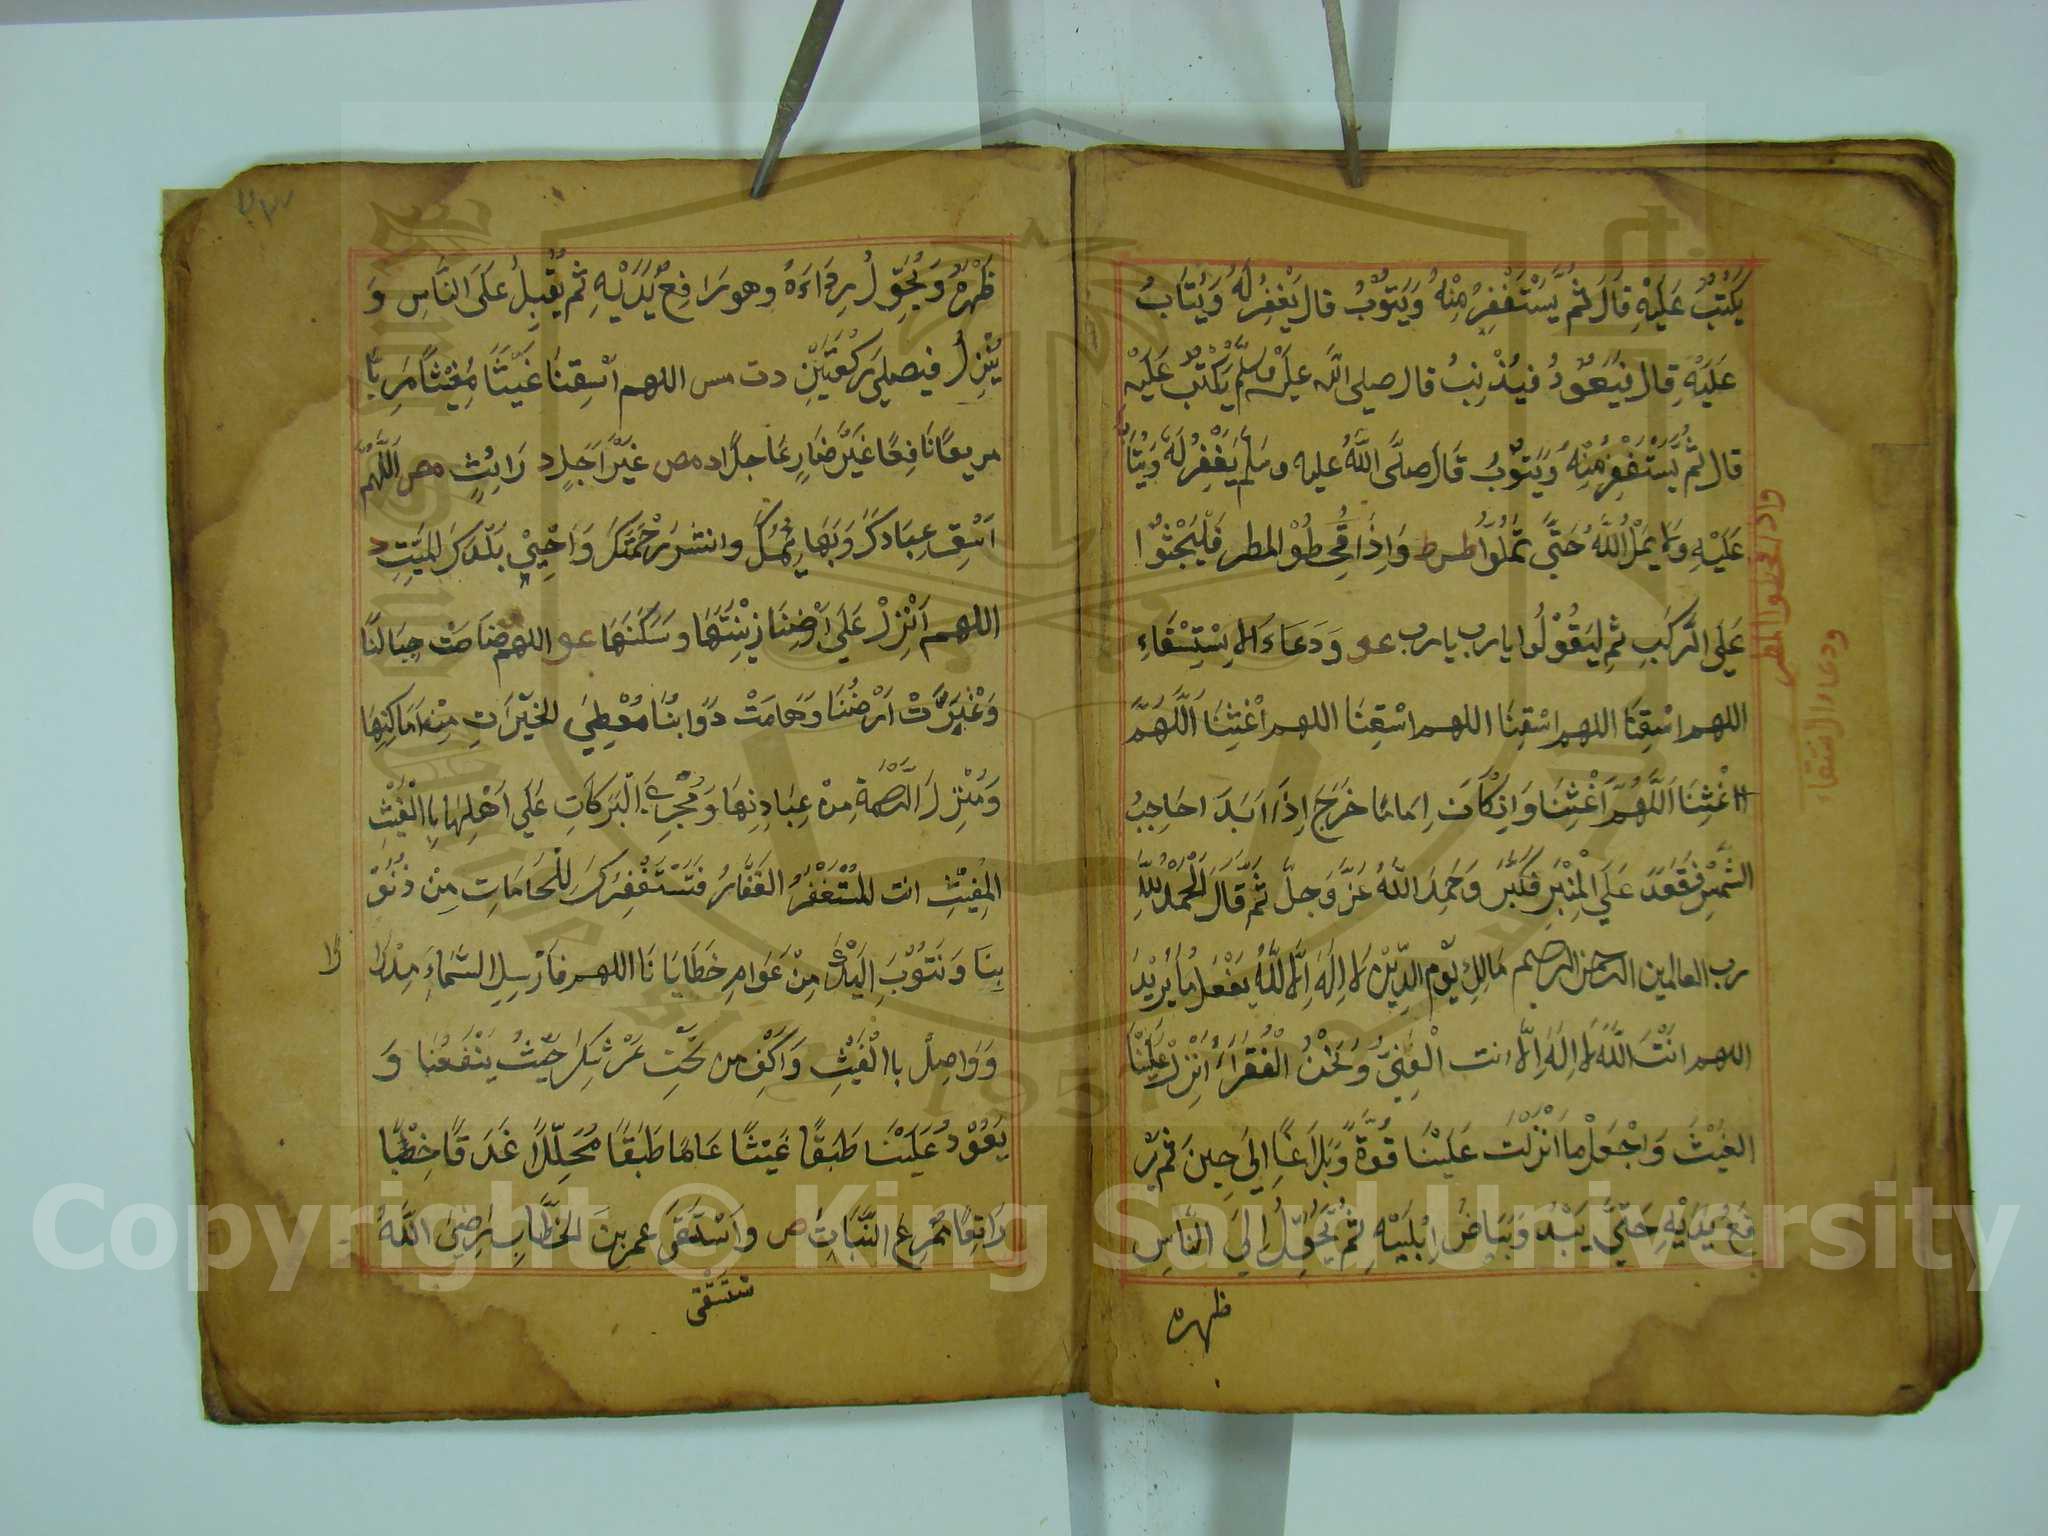 يَكْتُبُ عَلَيْهِ قَالَ ثُمَّ يَسْتَغْفِرُ مِنْهُ وَيَتُوْبُ قال يَغْفِرُ لَهُ وَيُتَابُ
عَلَيْهِ قال فيَعُوْدُ فيُذْنِبُ قال صلى الله عليه وسلم يَكْتُبُ عَلَيْه
قال ثُمَّ يَسْتَغْفِرُ مِنْهُ وَيَتُوْبُ قَالَ صلَّى اللَّهُ عليه وسلم يَغْفِرُ لَهُ وَيُتَابُ
عَلَيْهِ وَلا يَمَلُّ اللَّهُ حَتَّى تَمَلُّوْا طس ط وَإِذَا قُحِطُوْا المطر فَلْيَجْثُوْا
عَلَى الرُّكَبِ ثم ليَقُوْلُوا يا رب يا رب عو وَدَعَاءَ الاِسْتِسْقَاءِ
اللهم اسْقِنَا اللهم اسْقِنَا اللهم اسْقِنَا اللهم اَغْثِنَا اَللَّهُمَّ
اَغْثِنَا اَللَّهُمَّ اَغْثِنَا وَاِنْ كَانَ اِمَامًا خَرَجَ اِذَا بَدَا حَاجِبُ
الشَّمْسِ فَقَعَدَ عَلَى الْمِنْبَرِ فَكَبَّرَ وَحَمِدَ اللَّهَ عَزَّ وَجلَّ ثُمَّ قَالَ اَلْحَمْدُ لِلَّهِ
رب العالمين الرحمن الرحيم مَالِكِ يَوْمِ الدِّيْنِ لا اِلَهَ اِلَّا اللَّهُ يَفْعَلُ مَا يُرِيْدُ
اللهم اَنْتَ اللَّهُ لا اِلَهَ اِلَّا انت الْغَنِيُّ وَنَحْنُ الْفُقَرَاءُ اَنْزِلْ عَلَيْنَا
الغَيْثَ وَاجْعَلْ ما اَنْزَلْتَ عَلَيْنَا قُوَّةً وَبَلَاغًا اِلَى حِينَ ثم يَرْ
فَعُ يَدَيْهِ حَتَّى يَبْدُ وَبَيَاضُ اِبْطَيْهِ ثُمَّ يُحَوِّلُ اِلَى النَّاسِ
ظهره
واذا قحطوا المطر
ودعاء الاستسقاء
ظَهْرَهُ وَيُحَوِّلُ رِدَاءَهُ وهو رَافِعٌ يَدَيْهِ ثم يُقْبِلُ عَلَى النَّاسِ وَ
يَنْزِلُ فيصلي رَكْعَتَيْنِ د ت مس اللهم اَسْقِنَا غَيْثًا مُغِيْثًا مَرِيًّا
مريعًا نَافِعًا غَيْرَ ضَارٍ عَاجلًا د مص غَيْرَ اَجَلٍ د رَائِثٍ مص اَللَّهُمَّ
اَسْقِ عِبَادَكَ وَبَهَائِمَكَ وانشر رَحْمَتَكَ وَاَحْيِيْ بَلَدَكَ المَيِّتِ د
اللهم اَنْزِلْ عَلَى اَرْضِنَا زِيْنَتَهَا وسَكَنَهَا عو اللهم ضَاحَتْ جِبَالُنَا
وَغْبَرَّتْ اَرْضُنَا وَهَامَتْ دَوَابُنَا مُعْطِيَ الخَيْرَاتِ مِنْ اَمَاكِنِهَا
وَمُنْزِلَ الرَّحْمَةِ من مَعَادِنِهَا وَمُجْرِيَ الْبَرَكَاتِ عَلَى اَهْلِهَا بِا الْغَيْثِ
المُغِيْثِ انت المُسْتَغْفَرُ الغَفَّارُ فَنَسْتَغْفِرُكَ لِلْحَامَاتِ مِنْ ذُنُوْ
بِنَا وَنَتُوْبُ اِلَيْكَ مِنْ عَوَامِ خَطَايَانَا اللهم فَاَرْسِلِ السَّمَاءَ مِدْرَا
رًا
وَوَاصِلْ با الْغَيْثِ وَاكْفِ من تَحْتِ عَرْشِكَ حَيْثُ يَنْفَعُنَا وَ
يَعُوْدُ عَلَيْنَا طَبَقًا غَيْثًا عَامًا طَبَقًا مُجَلِّلًا غَدَقًا خِصْبًا
رَاتِعًا مُمْرِعَ النَّبَاتِ ص وَاسْتَسْقَى عمر بن الخَطَّابِ رَضِيَ اللَّهُ
Copyright © King Saud University
1957